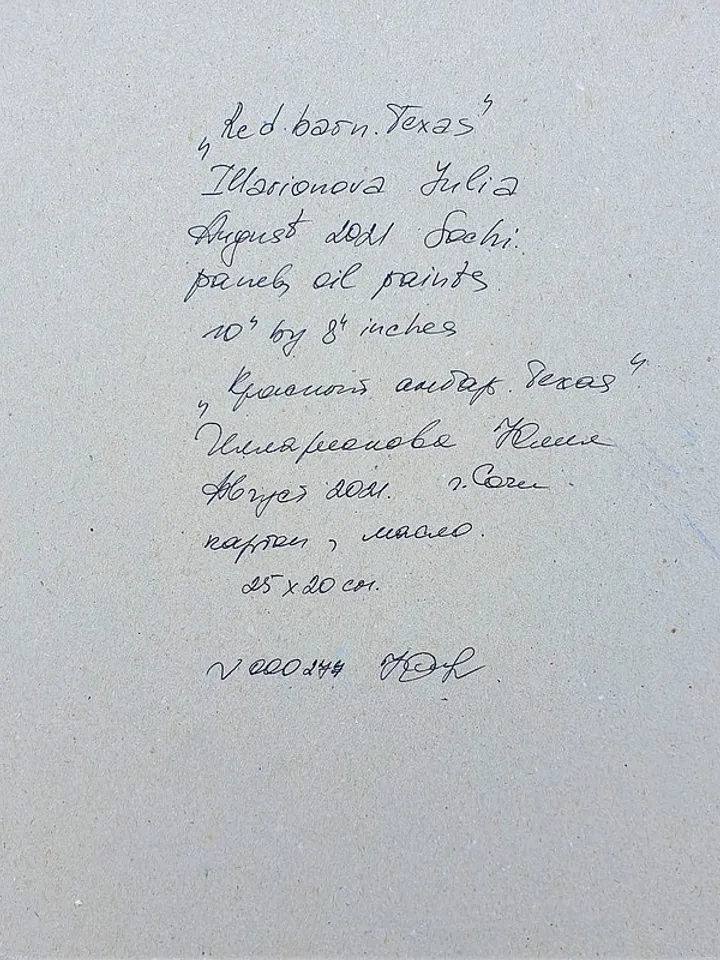 „Red barn. Texas"
Illarionova Julia
August 2021 Sochi.
panel, oil paints
10" by 8" inches
„Красный амбар. Техас"
Илларионова Юлия
Август 2021. г. Сочи
картон, масло.
25 x 20 см.
V 000277